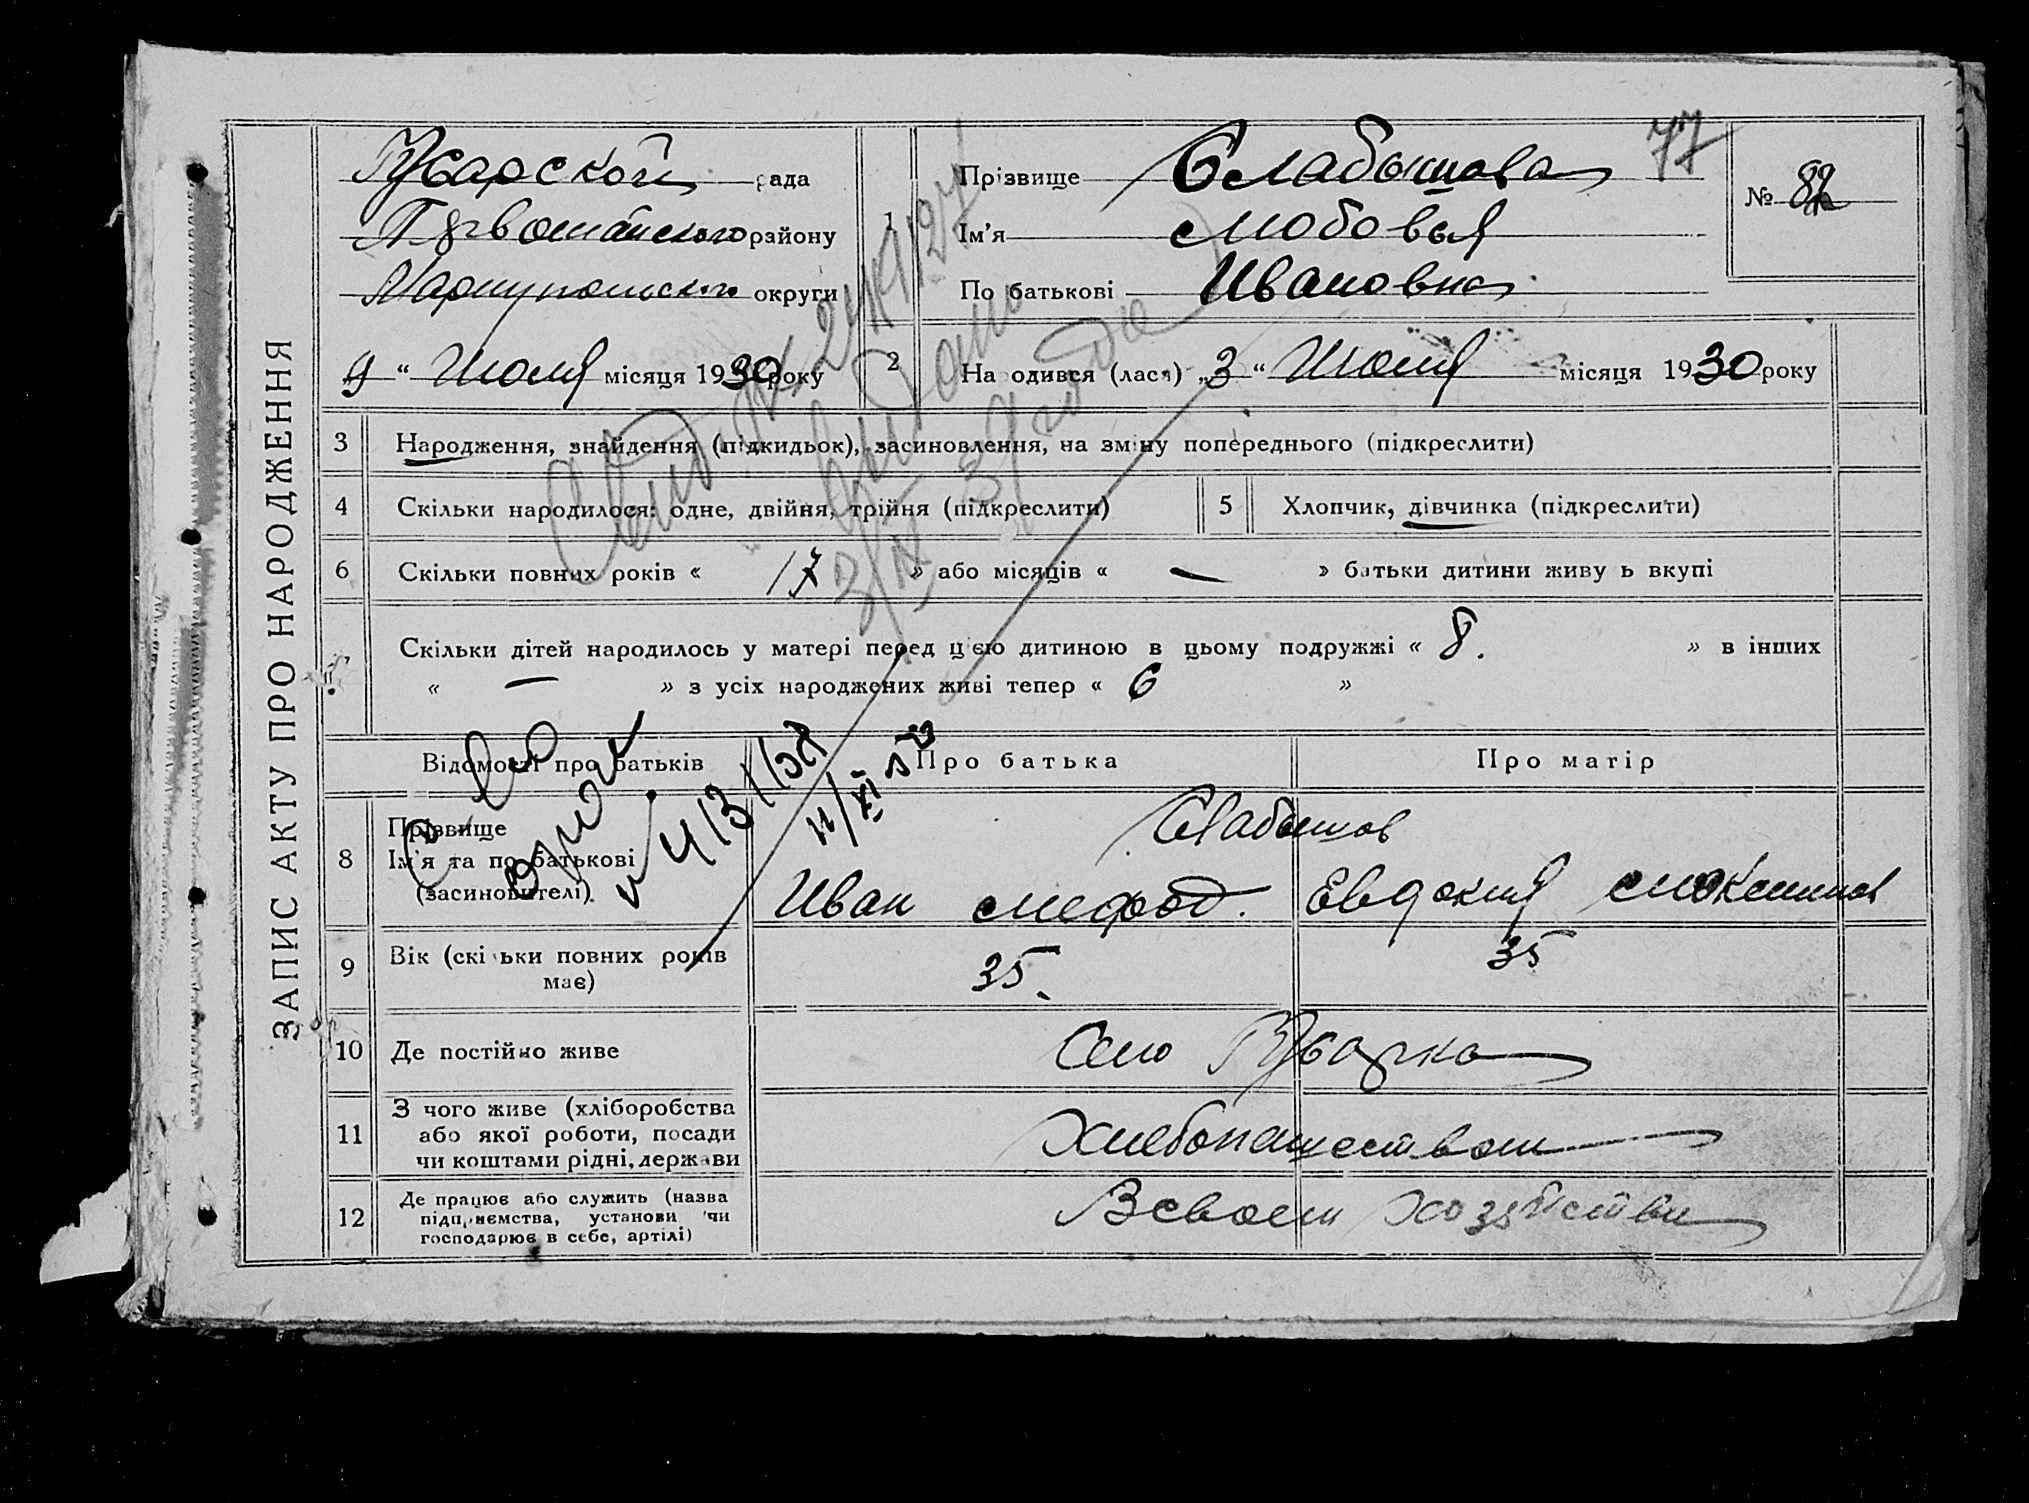 ЗАПИС АКТУ ПРО НАРОДЖЕННЯ
77
рада
Первомайского району
Мариупольского округи
„9“ Июля місяця 1930 року
1 Прізвище Слабышова
Ім'я Любовья
По батькові Ивановна
№ 82
2 На одився (лася) „3“ Июля місяця 1930 року
3 Народження, знайдення (підкидьок), засиновлення, на зміну попереднього (підкреслити)
4 Скільки народилося: одне, двійня, трійня (підкреслити)
5 Хлопчик, дівчинка (підкреслити)
6 Скільки повних років « 17 » або місяців « — » батьки дитини живу ь вкупі
Скільки дітей народилось у матері перед цією дитиною в цьому подружжі « 8. » в інших
« — » з усіх народжених живі тепер « 6 »
Відомості про батьків
Про батька
Про матір
8 Прізвище
Ім'я та по батькові
(засиновителі)
Слабышов
Иван Мефод. Евдокия
9 Вік (скільки повних років
має)
35. 35
10 Де постійно живе
Село
11 З чого живе (хліборобства
або якої роботи, посади
чи коштами рідні, держави
Хлебопашеством
12 Де працює або служить (назва
підприємства, установи чи
господарює в себе, артілі)
В своем хозяйстви